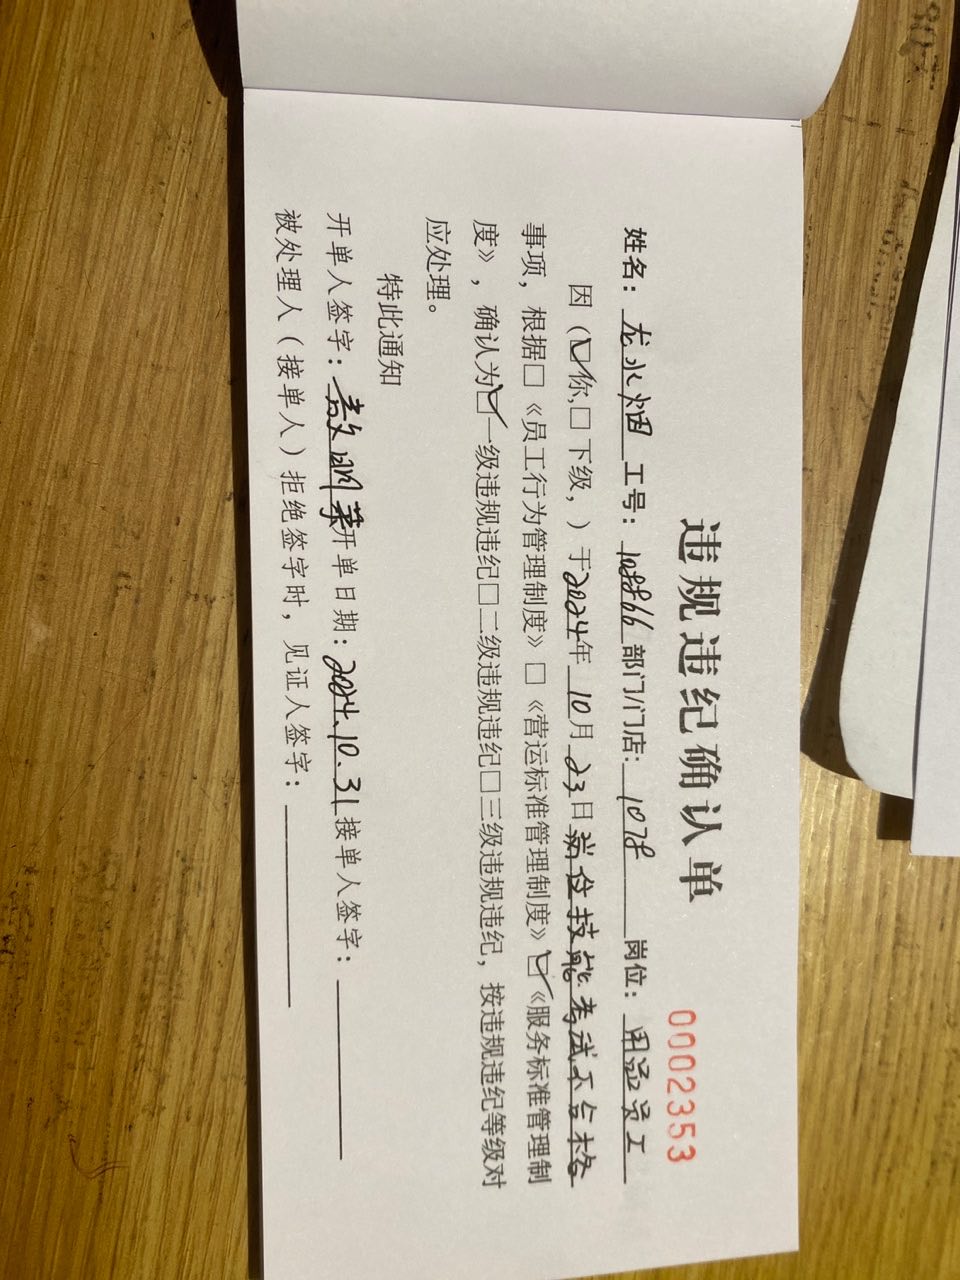 违规违纪确认单
0002353
姓名：龙水烟 工号：108866 部门/门店：1078 岗位：用涵员工
因（☑你，□下级，）于2024年10月23日岗位技能考试不合格
事项，根据□《员工行为管理制度》□《营运标准管理制度》☑《服务标准管理制
度》，确认为☑一级违规违纪□二级违规违纪□三级违规违纪，按违规违纪等级对
应处理。
特此通知
开单人签字：敖明菶 开单日期：2024.10.31 接单人签字：
被处理人（接单人）拒绝签字时，见证人签字：